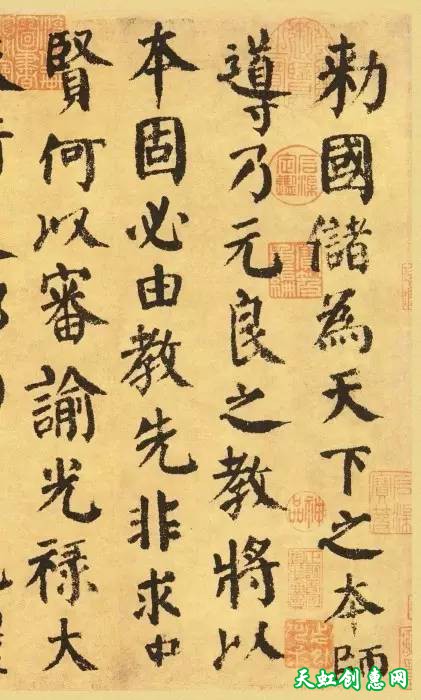 勅國儲為天下之本師
導乃元良之教將以
本固必由教先非求忠
賢何以審諭光祿大
神品
天虹创惠网